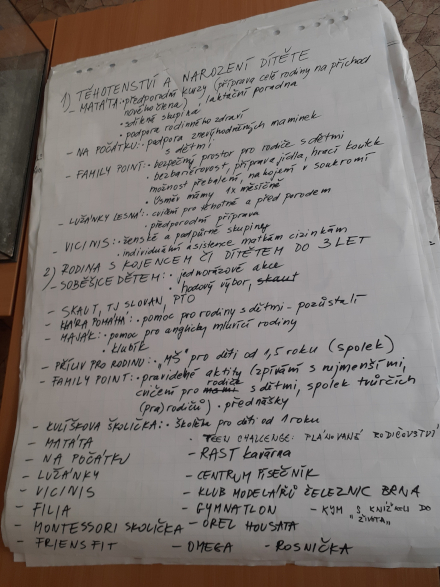 1) TĚHOTENSTVÍ A NAROZENÍ DÍTĚTE
- MATÁTA: • předporodní kurzy (příprava celé rodiny na příchod
nového člena), laktační poradna
• sdílená skupina
• podpora rodinného zdraví
- NA POČÁTKU: • podpora znevýhodněných maminek
s dětmi
- FAMILY POINT: • bezpečný prostor pro rodiče s dětmi
• bezbariérovost, příprava jídla, hrací koutek
možnost přebalení, nakojení v soukromí
• Úsměv mámy 1x měsíčně
- LUŽÁNKY LESNÁ: • cvičení pro těhotné a před porodem
• předporodní příprava
- VICINIS: • ženské a podpůrné skupiny
• individuální asistence matkám cizinkám
2) RODINA S KOJENCEM ČI DÍTĚTEM DO 3 LET
- SOBĚŠICE DĚTEM: • jednorázové akce
hodový výbor, skaut
- SKAUT, TJ SLOVAN, PTO
- POMÁHÁ: • pomoc pro rodiny s dětmi - pozůstalí
- MAJÁK: • pomoc pro anglicky mluvící rodiny
• klubík
- PŘÍLIV PRO RODINU: • "MŠ" pro děti od 1,5 roku (spolek)
- FAMILY POINT: • pravidelné aktivity (zpívání s nejmenšími,
cvičení pro rodiče s dětmi, spolek tvůrčích
(pra)rodičů) • přednášky
- KULÍŠKOVA ŠKOLIČKA: • školka pro děti od 1 roku
- MATÁTA - TEEN CHALLENGE: PLÁNOVANÉ RODIČOVSTVÍ
- NA POČÁTKU - RAST kavárna
- LUŽÁNKY - CENTRUM PÍSEČNÍK
- VICINIS - KLUB MODELÁŘŮ ŽELEZNIC BRNA
- FILIA - GYMNATLON - KJM "S KNÍŽKOU DO
ŽIVOTA"
- MONTESSORI ŠKOLIČKA - OREL HOUSATA
- FRIENSFIT - OMEGA - ROSNIČKA